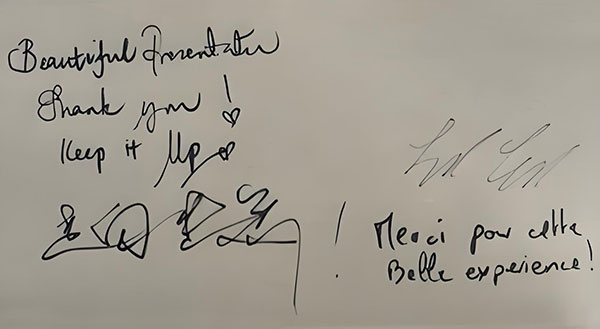 Beautiful Presentation
Thank you !
Keep it Up
! Merci pour cette
Belle experience!